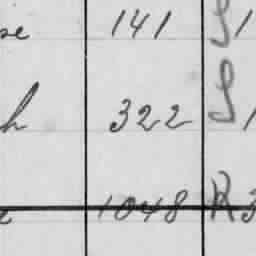 se 141 S 1
h 322 S 1
1048 R 3